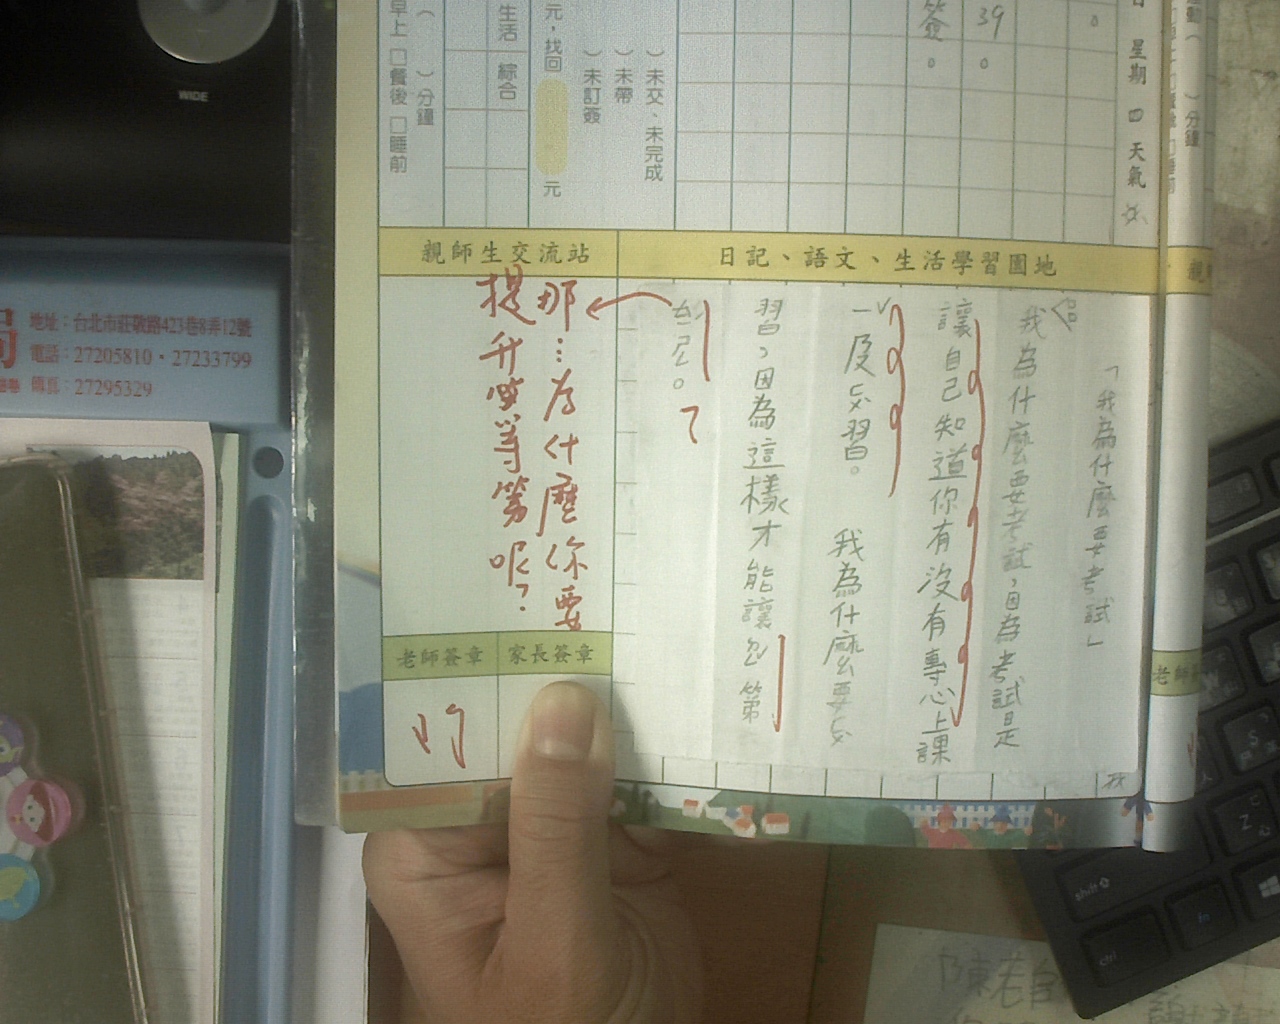 「我為什麼要考試」
我為什麼要考試，因為考試是
讓自己知道你有沒有專心上課
一及ㄈㄨˋ習。 我為什麼要ㄈㄨˋ
習，因為這樣才能讓 第
自己。
那…為什麼你要
提升等等第呢？
日記、語文、生活學習園地
親師生交流站
老師簽章
家長簽章
星期 四 天氣
簽。
39。
（ ）未交、未完成
（ ）未帶
（ ）未訂簽
元，找回
元
生活
綜合
（ ）分鐘
早上 □餐後 □睡前
WIDE
地址：台北市莊敬路423巷8弄12號
電話：27205810・27233799
傳真：27295329
局
shift
ctrl
fn
Z
S